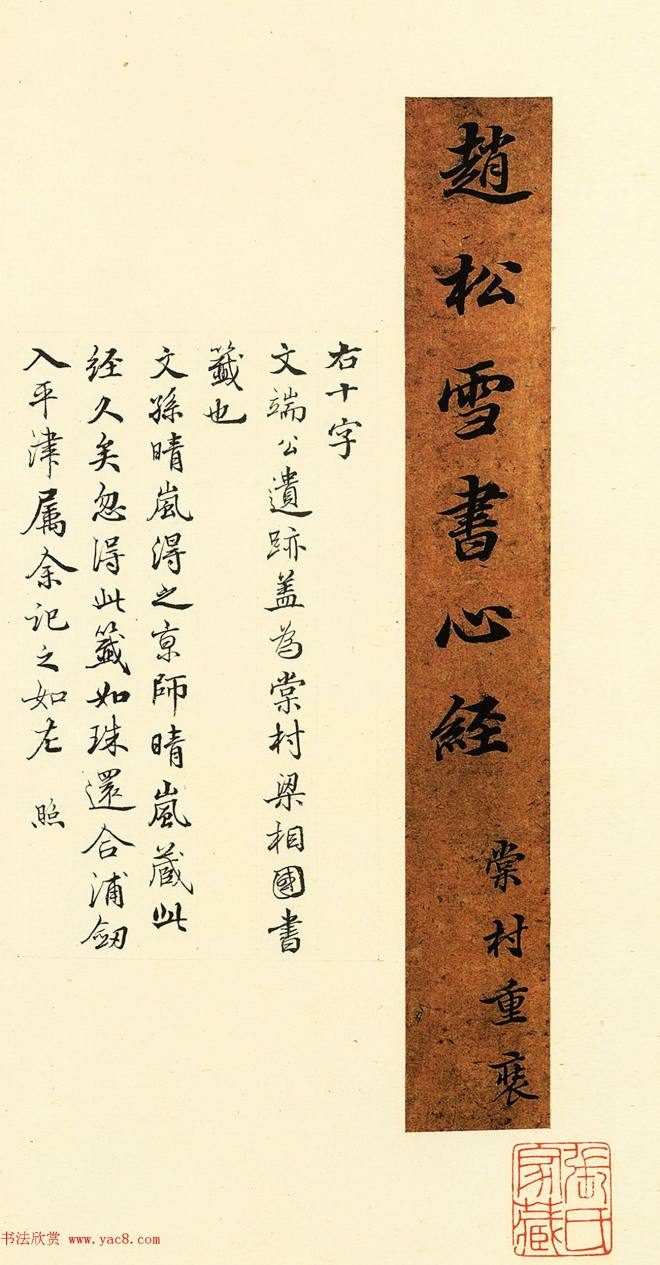 趙松雪書心経
棠村重裝
右十字
文端公遺跡盖為棠村梁相國書
籤也
文孫晴嵐得之京師晴嵐蔵此
経久矣忽得此籤如珠還合浦劔
入平津属余記之如左 照
張氏
家藏
书法欣赏 www.yac8.com